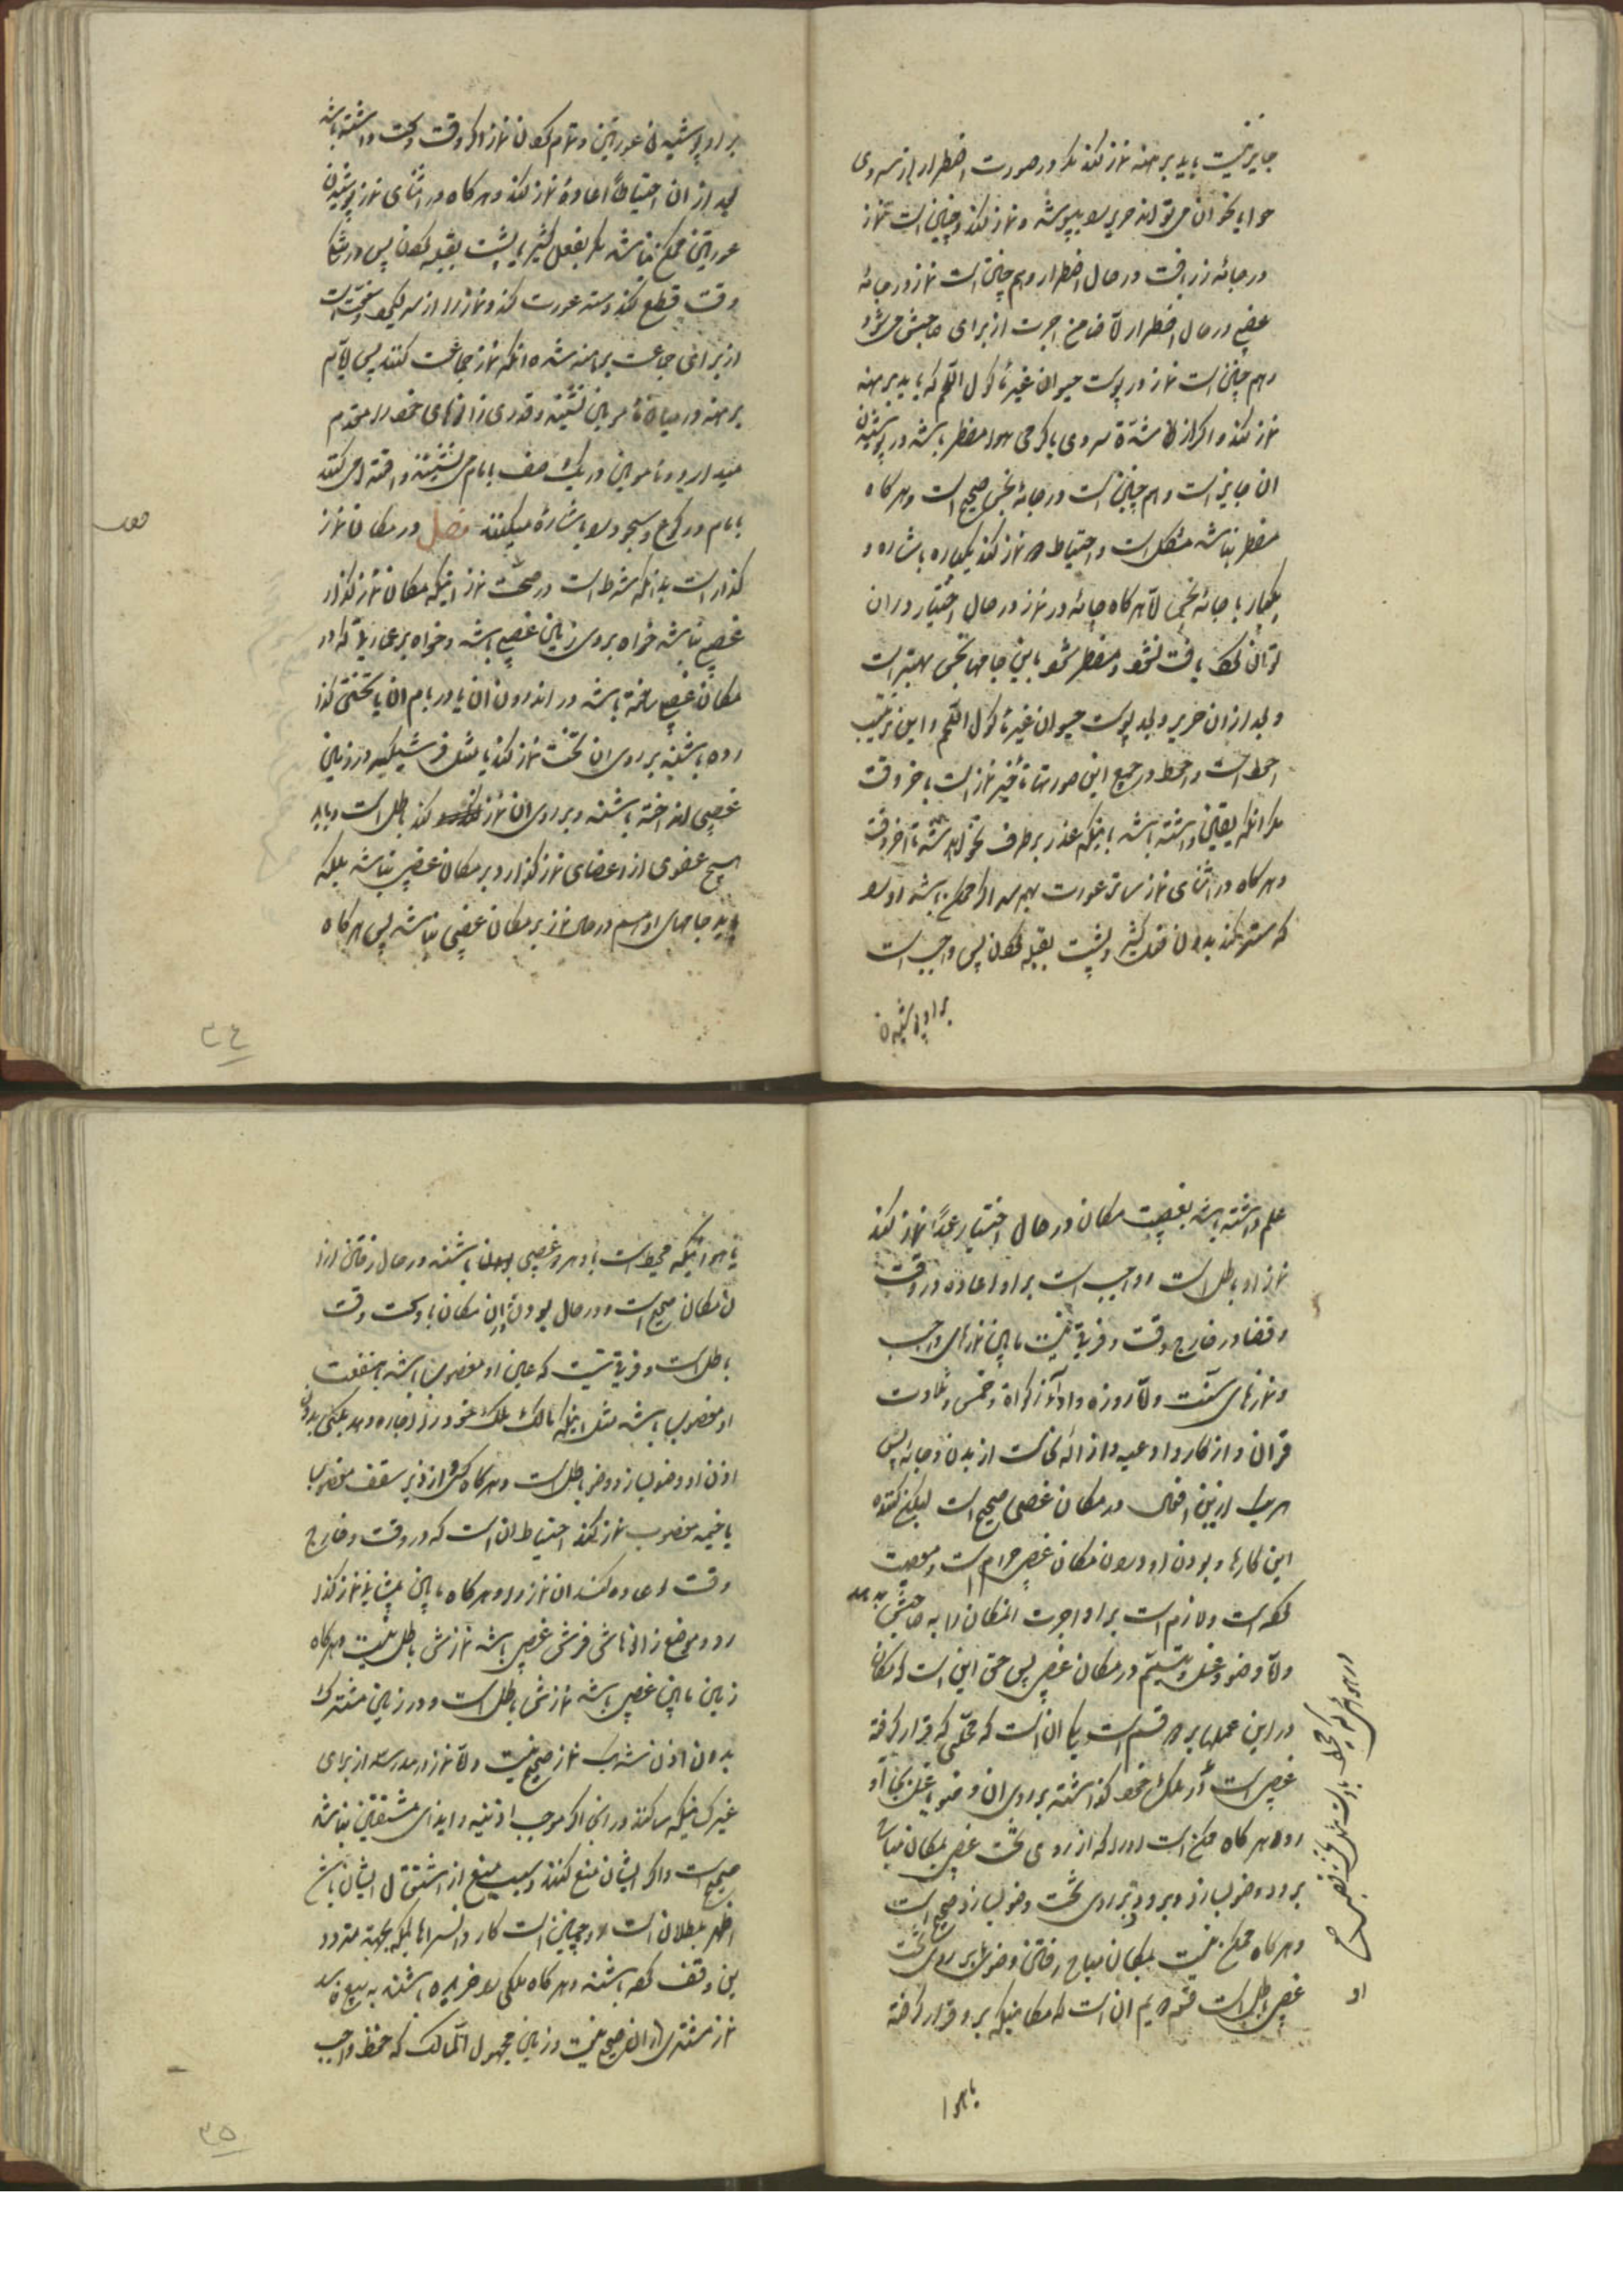 جایز نیست باید برهنه نماز کند مگر در صورت اضطرار از سردی
هوا یا غیر ان می تواند حریر را بپوشد و نماز کند و چنین است نماز
در جامهٔ زربافت در حال اضطرار و هم چنین است نماز در جامهٔ
غصبی در حال اضطرار الّا ضامن اجرت از برای صاحبش می شود
و هم چنین است نماز در پوست حیوان غیر مأکول اللّحم که باید برهنه
نماز کند و اگر از شدّة سردی یا گرمی هوا مضطر باشد در پوشیدن
ان جایز است و هم چنین است در جامهٔ نجس صحیح است و هرگاه
مضطر نباشد مشکل است و احتیاط نماز کند یکباره
یکبار با جامهٔ نجس الّا هرگاه جامه در نماز در حال اختیار در ان
توان کرد یافت نشود و مضطر شود باین جامها نجس بهتر است
و بعد از ان حریر و بعد پوست حیوان غیر مأکول اللّحم و این ترتیب
احوط است و احوط در جمیع این صورتها تأخیر نماز است باخر وقت
مگر انکه یقین داشته باشد باینکه عذر برطرف نخواهد شد تا آخر وقت
و هرگاه در اثنای نماز ساتر عورت بهم رسد اگر ممکن باشد او را
که ستر کند بدون فعل کثیر و پشت بقبله کردن پس واجب است
براو پوشیدن
بر او پوشیدن عورتین و تمام کردن نماز اگر وقت وسعت داشته باشد
بعد از ان احتیاطاً اعادهٔ نماز کند و هرگاه در اثنای نماز پوشیدن
عورتین ممکن نباشد مگر بفعل کثیر یا پشت بقبله کردن پس در
وقت قطع کند و ستر عورت کند و نماز را از سر گیرد و سنّت است
از برای جماعت برهنه شده انکه نماز جماعت کنند پس امام
برهنه در میان مأمومین نشیند و قدری زانوهای خود را مقدم
میدارد و مأمومین در یک صف با امام می نشینند و اقتدا می کنند
بامام در رکوع و سجود را باشاره میکنند فصل در مکان نماز
گذار است بدانکه شرط است در صحّت نماز اینکه مکان نماز گذار
غصبی نباشد خواه بروی زمین غصبی باشد و خواه بر عمارتی که در
مکان غصبی ساخته باشد در اندرون ان یا در بام ان یا تختی گذا
رده باشند بر روی ان تخت نماز کند یا مثل فرشیکه در زمین
غصبی انداخته باشند و بر روی ان نماز کند باطل است و باید
هیچ عضوی از اعضای نماز گذار در مکان غصبی نباشد بلکه
باید جامهای او هم در حال نماز بر مکان غصبی نباشد پس هرگاه
۳۴
علم داشته باشد بغصبیت مکان در حال اختیار عمداً نماز کند
نماز او باطل است و واجب است بر او اعاده در وقت
و قضا در خارج وقت و فرق نیست مابین نمازهای واجب
و نمازهای سنّت و امّا روزه و ادای زکوة و خمس و تلاوت
قران و اذکار و ادعیه و ازالهٔ نجاست از بدن و جامه پس
هریک از این افعال در مکان غصبی صحیح است لیکن کننده
این کارها و بودن او در ان مکان غصبی حرام است و معصیت
کرده است و لازم است بر او اجرت المکان را به صاحبش بدهد
و امّا وضو و غسل و تیمّم در مکان غصبی پس حق این است که مکان
در این عملها بر دو قسم است یکی ان است که محلّی که قرار گرفته
غصبی است از ملک خود گذاشته بر روی ان وضو یا غسل بجا آو
رده هرگاه ممکن است او را که از روی تخت غصبی بمکان مباح
برود وضو بسازد و برود بر روی تخت وضو بسازد صحیح است
و هرگاه ممکن نیست بمکان مباح رفتن وضو بر روی تخت
غصبی باطل است قسم دویم ان است که مکانیکه بر او قرار گرفته
یا هوا
یا هوا اینکه محیط است باو هر دو غصبی بوده باشند در حال رفتن از ا
ن مکان صحیح است و در حال بودن در ان مکان با وسعت وقت
باطل است و فرق نیست که عین او مغصوب باشد یا منفعت
او مغصوب باشد مثل اینکه مالک ملک خود را اجاره دهد بکسی بدون
اذن او وضو بسازد وضو باطل است و هرگاه کسی در زیر سقف مغصوب
یا خیمه مغصوب نماز کند احتیاط ان است که در وقت و خارج
وقت اعاده کند ان نماز را و هرگاه مابین پیشانی نماز گذا
ر و موضع زانوهاش فرشی غصبی باشد نمازش باطل نیست و هرگاه
زمین مابین غصبی باشد نمازش باطل است و در زمین مشترک
بدون اذن شریک نماز صحیح نیست و امّا نماز در مدرسه از برای
غیر کسانیکه ساکنند در ان اگر موجب اذیّت و ایذای مشتغلین نباشد
صحیح است و اگر ایشان منع کنند و سبب منع از اشتغال ایشان باشد
اظهر بطلان است و همچنین است کاروانسراها اینکه بجهة متردد
ین وقف کرده باشند و هرگاه ملکی را خریده باشند به بیع فاسد
نماز مشتری در ان صحیح نیست و زمین مجهول المالک که حفظ واجب
۳۵